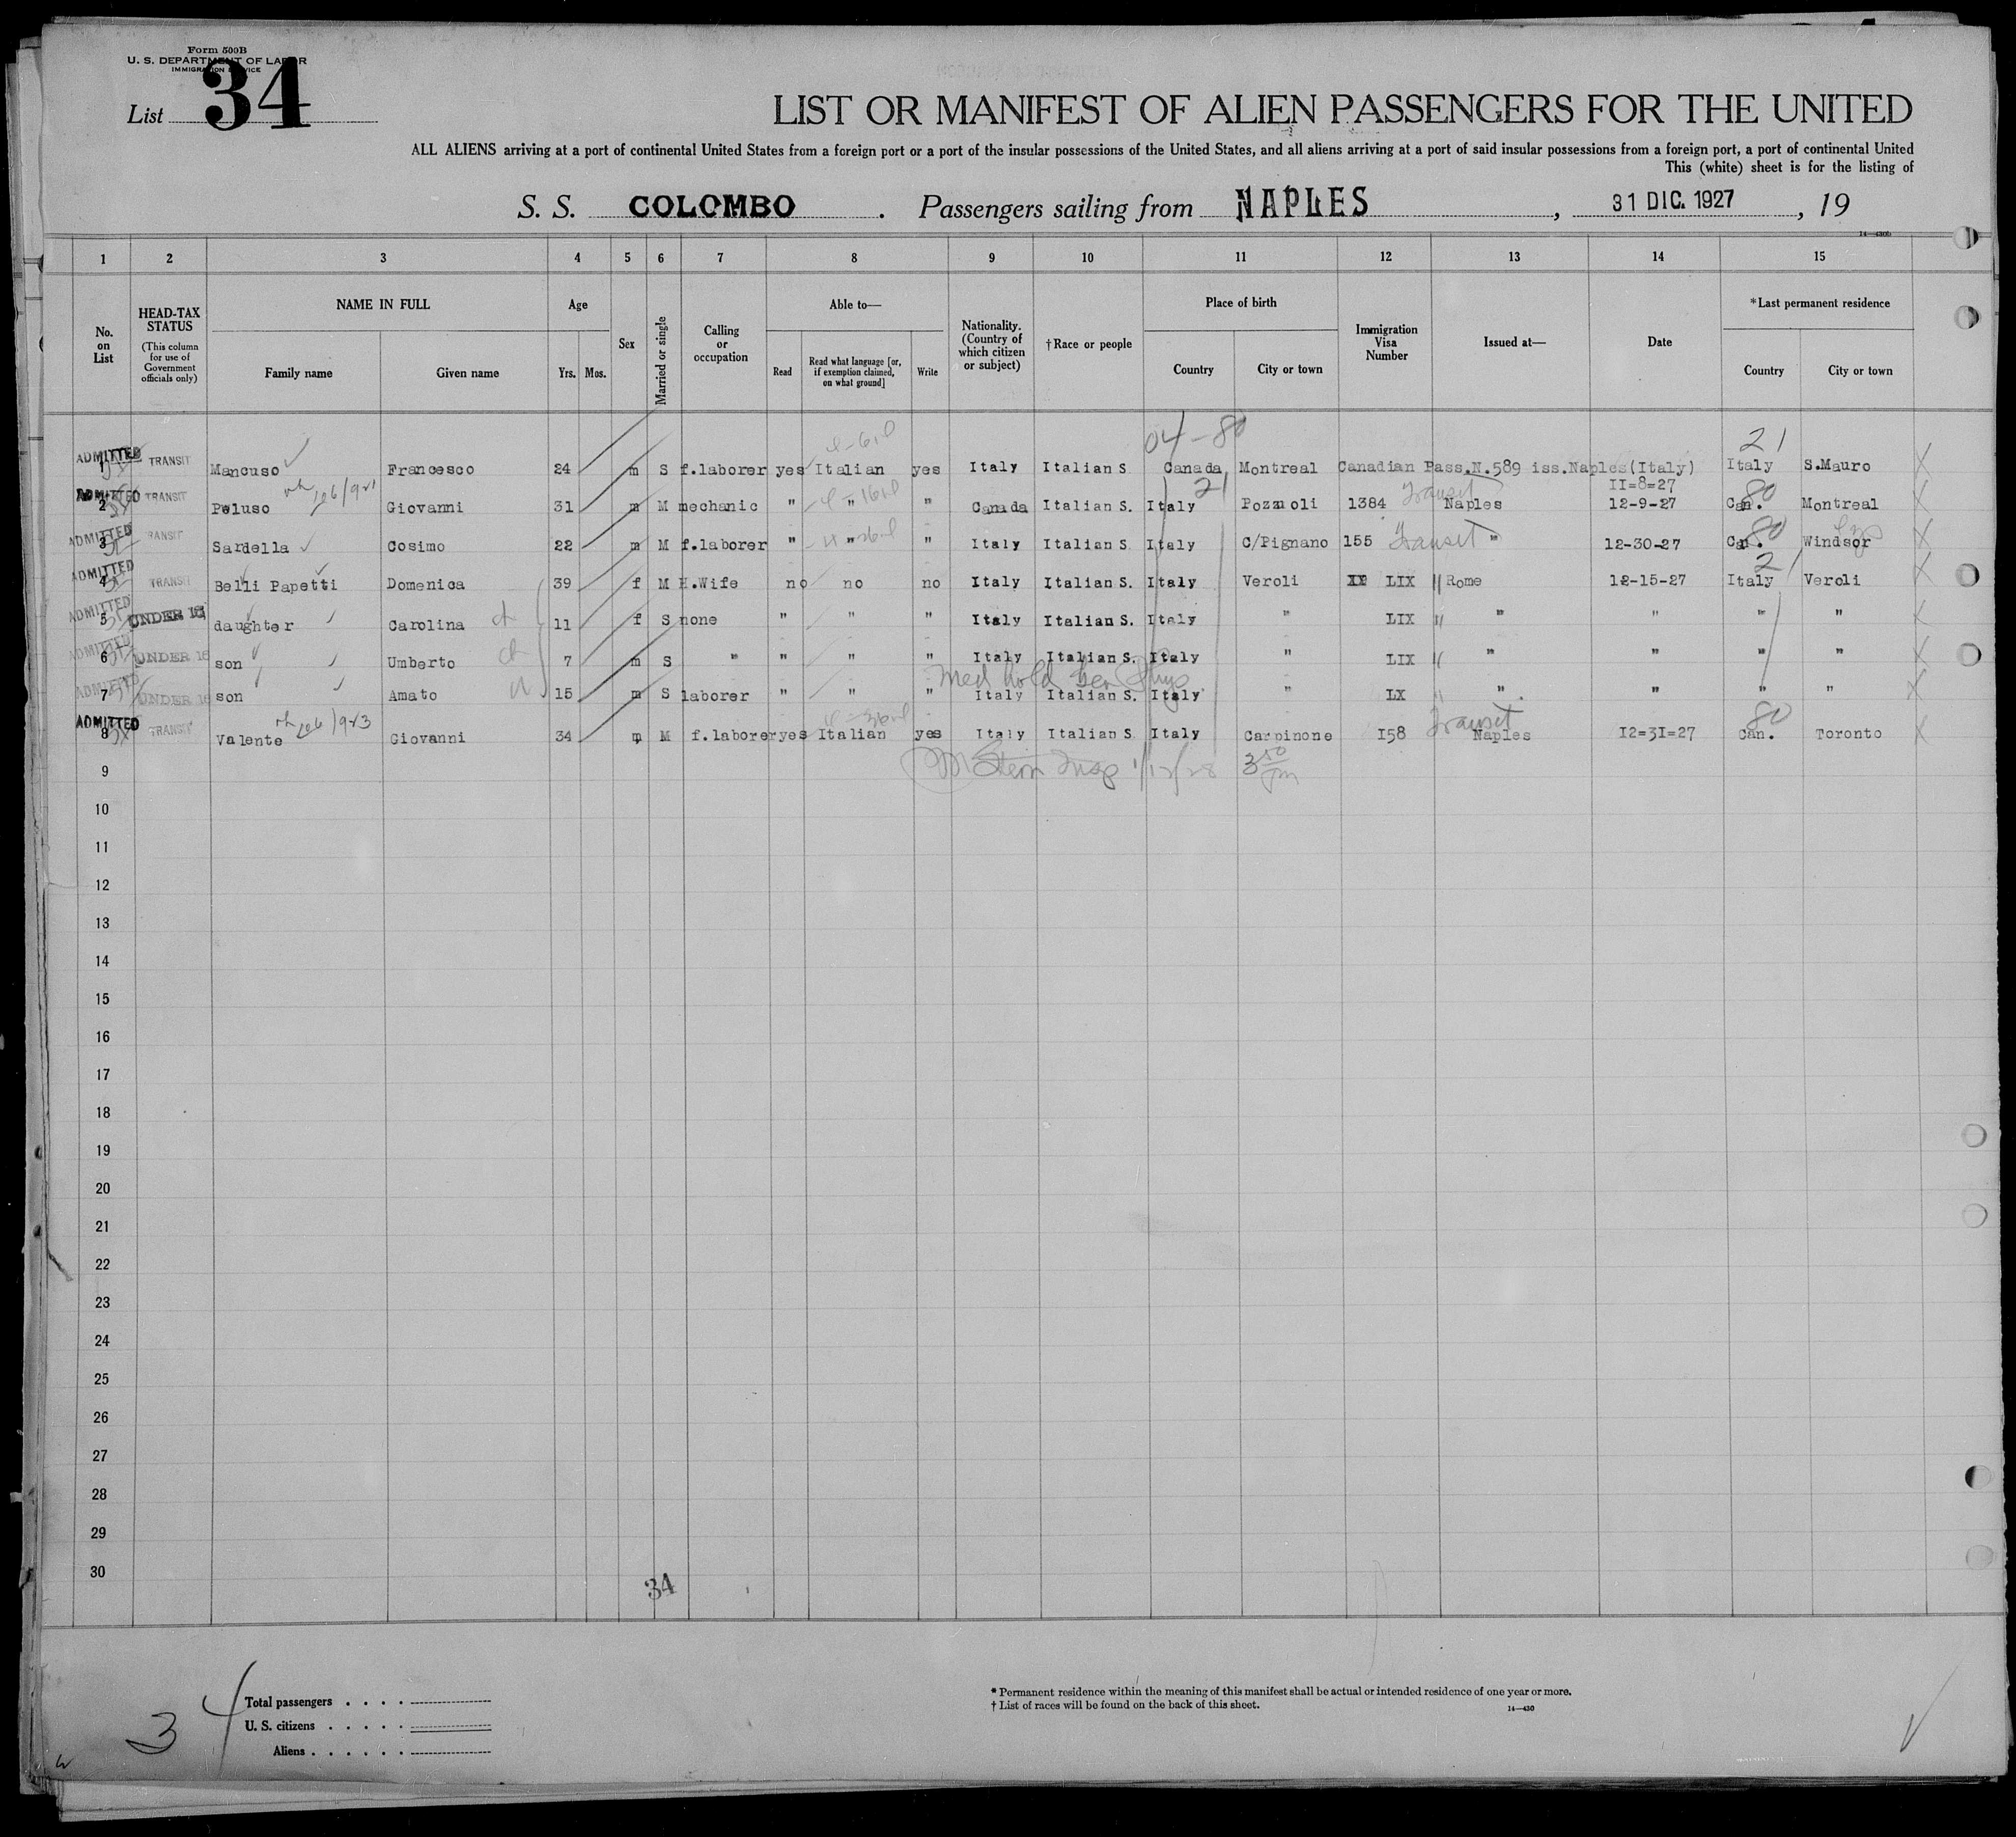 Form 500B
U. S. DEPARTMENT OF LABOR
IMMIGRATION SERVICE
List 34
LIST OR MANIFEST OF ALIEN PASSENGERS FOR THE UNITED
ALL ALIENS arriving at a port of continental United States from a foreign port or a port of the insular possessions of the United States, and all aliens arriving at a port of said insular possessions from a foreign port, a port of continental United
This (white) sheet is for the listing of
S. S. COLOMBO . Passengers sailing from NAPLES , 31 DIC. 1927 , 19
1 2 3 4 5 6 7 8 9 10 11 12 13 14 15
No. on List
HEAD-TAX STATUS (This column for use of Government officials only)
NAME IN FULL
Family name Given name
Age
Yrs. Mos.
Sex
Married or single
Calling or occupation
Able to—
Read
Read what language [or, if exemption claimed, on what ground]
Write
Nationality. (Country of which citizen or subject)
†Race or people
Place of birth
Country City or town
Immigration Visa Number
Issued at—
Date
*Last permanent residence
Country City or town
04-80 21
ADMITTED 1 TRANSIT Mancuso Francesco 24 m S f.laborer yes Italian yes Italy Italian S. Canada Montreal Canadian Pass.N.589 iss.Naples(Italy) II=8=27 Italy S.Mauro
21 Transit 80
ADMITTED 2 TRANSIT Peluso Giovanni 31 m M mechanic " " " Canada Italian S. Italy Pozzuoli 1384 Naples 12-9-27 Can. Montreal
Transit 80
ADMITTED 3 TRANSIT Sardella Cosimo 22 m M f.laborer " " " Italy Italian S. Italy C/Pignano 155 " 12-30-27 Can. Windsor
21
ADMITTED 4 TRANSIT Belli Papetti Domenica 39 f M H.Wife no no no Italy Italian S. Italy Veroli LIX Rome 12-15-27 Italy Veroli
ADMITTED 5 UNDER 16 daughter Carolina ch 11 f S none " " " Italy Italian S. Italy " LIX " " " "
ADMITTED 6 UNDER 16 son Umberto ch 7 m S " " " " Italy Italian S. Italy " LIX " " " "
Med hold
ADMITTED 7 UNDER 16 son Amato 15 m S laborer " " " Italy Italian S. Italy " LX " " " "
Transit 80
ADMITTED 8 TRANSIT Valente Giovanni 34 m M f.laborer yes Italian yes Italy Italian S. Italy Carpinone I58 Naples I2=3I=27 Can. Toronto
9 M Stern Insp 1/12/28 3 50 pm
10
11
12
13
14
15
16
17
18
19
20
21
22
23
24
25
26
27
28
29
30
34
Total passengers . . . .
U. S. citizens . . . . .
Aliens . . . . . .
3 4
* Permanent residence within the meaning of this manifest shall be actual or intended residence of one year or more.
† List of races will be found on the back of this sheet.
14—430